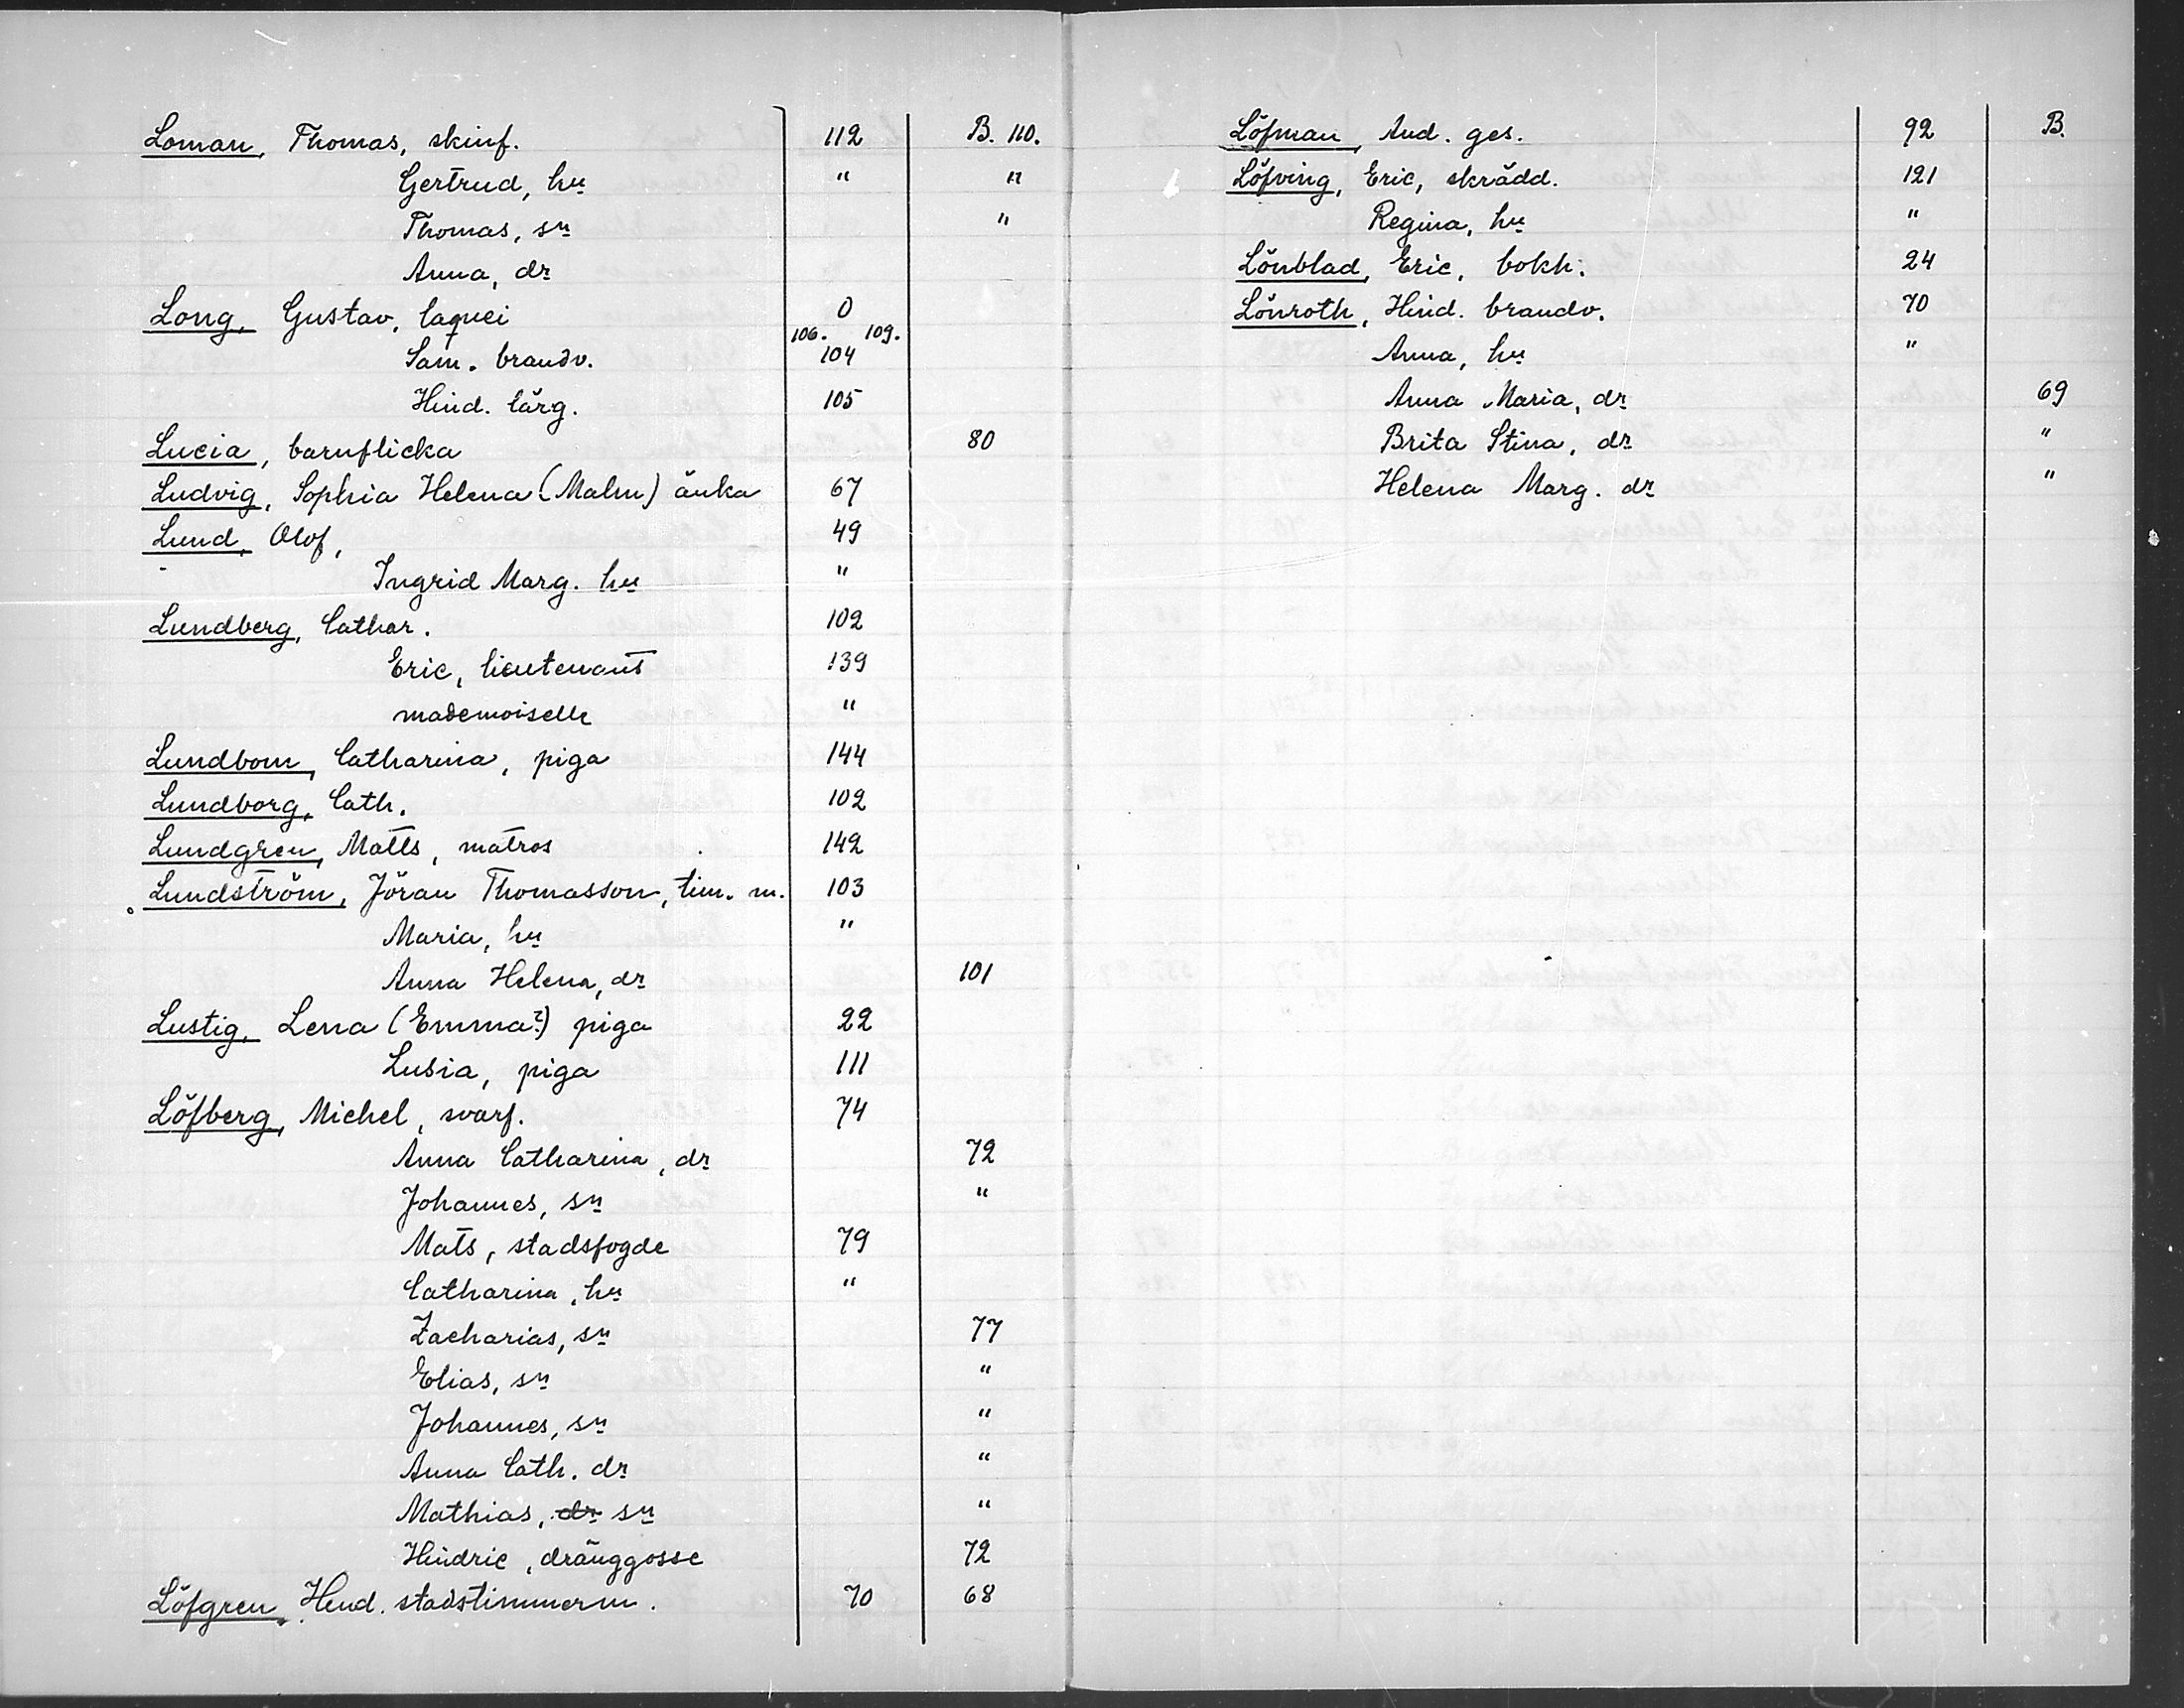 Loman, Thomas, skinf. 112 B. 110.
Gertrud, hu " "
Thomas, sn "
Anna, dr
Long, Gustav, laquei 0
106. 109.
Sam. brandv. 104
Hind. lärg. 105
Lucia, barnflicka 80
Ludvig, Sophia Helena (Malm) änka 67
Lund, Olof, 49
Ingrid Marg. hu "
Lundberg, Cathar. 102
Eric, lieutenant 139
mademoiselle "
Lundbom, Catharina, piga 144
Lundborg, Cath. 102
Lundgren, Matts, matros 142
Lundström, Jöran Thomasson, tim. m. 103
Maria, hu "
Anna Helena, dr 101
Lustig, Lena (Emma?) piga 22
Lusia, piga 111
Löfberg, Michel, svarf. 74
Anna Catharina, dr 72
Johannes, sn "
Mats, stadsfogde 79
Catharina, hu "
Zacharias, sn 77
Elias, sn "
Johannes, sn "
Anna Cath. dr "
Mathias, dr sn "
Hindric, dränggosse 72
Löfgren, Hend. stadstimmerm. 70 68
Löfman, And. ges. 92 B.
Löfving, Eric, skrädd. 121
Regina, hu "
Lönblad, Eric, bokh. 24
Lönroth, Hind. brandv. 70
Anna, hu "
Anna Maria, dr 69
Brita Stina, dr "
Helena Marg. dr "